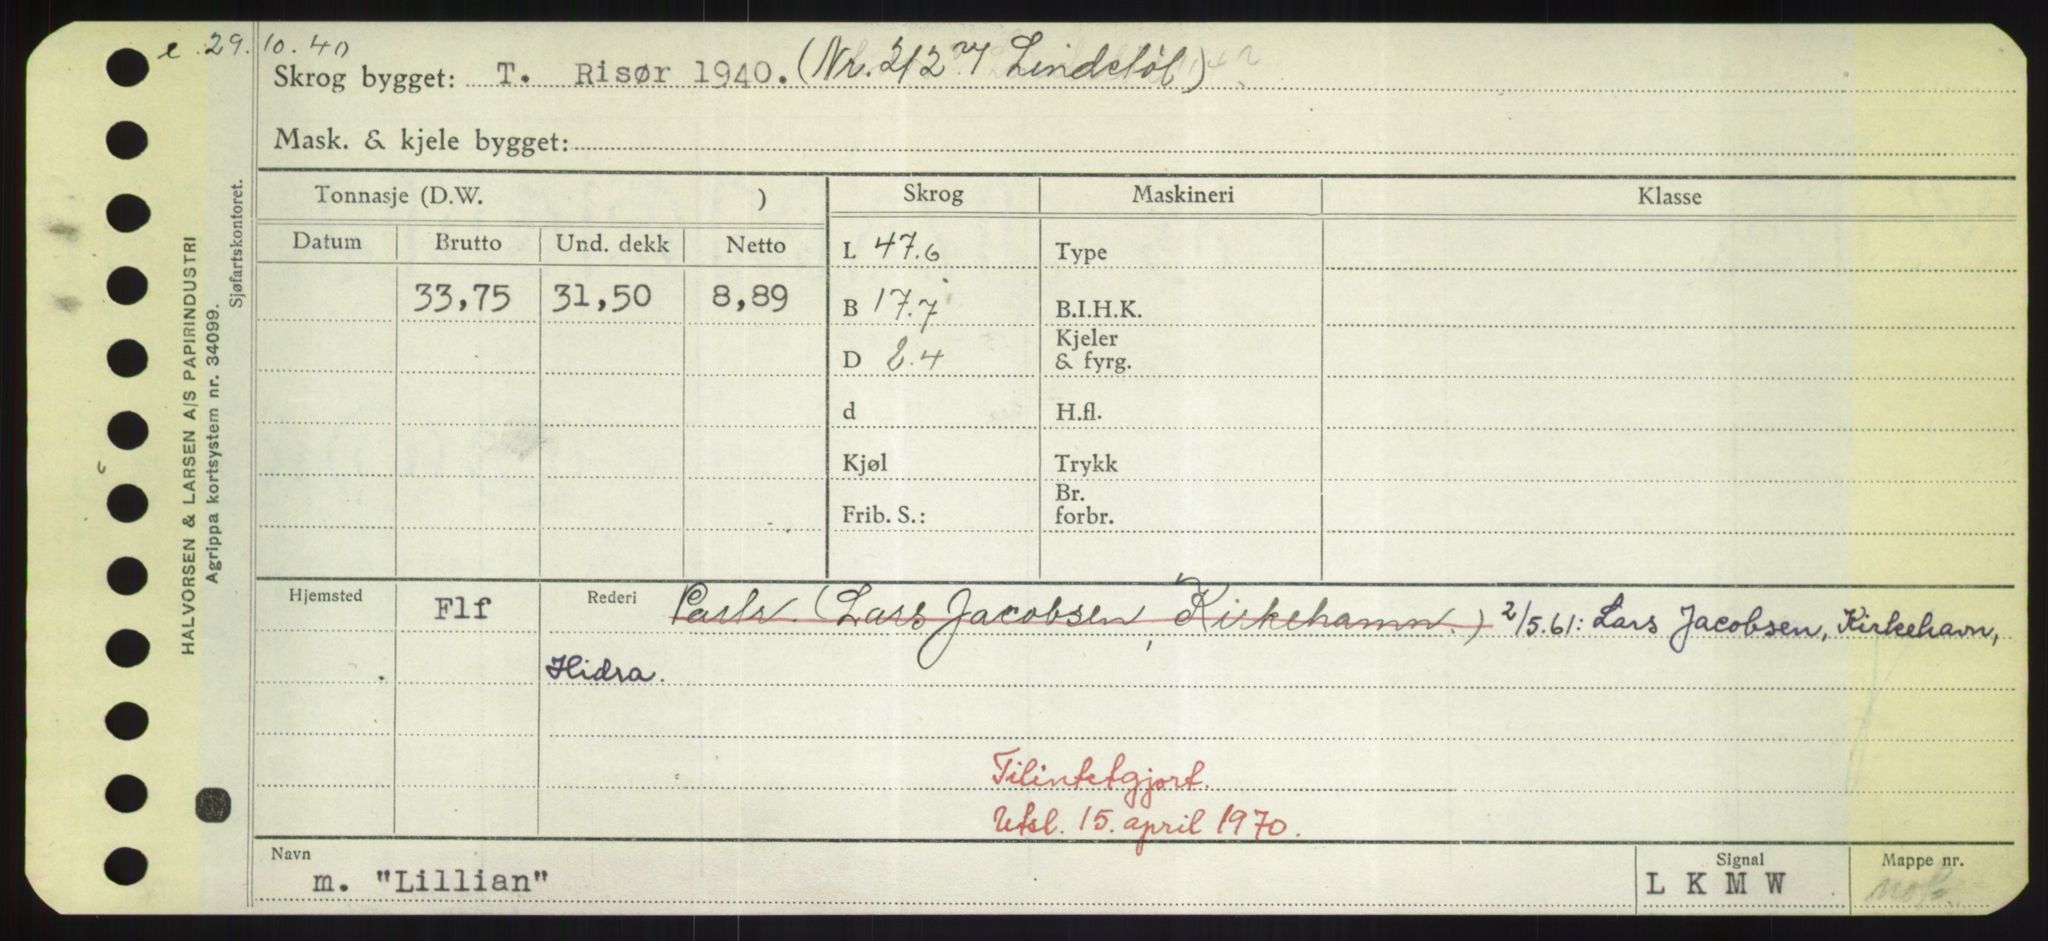 e. 29. 10. 40
Skrog bygget: T. Risør 1940. (Nr. 212 Lindstøl)
Mask. & kjele bygget:
Tonnasje (D.W. ) Skrog Maskineri Klasse
Datum Brutto Und. dekk Netto L 47.6 Type
33,75 31,50 8,89 B 17.7 B.I.H.K.
D 8.4 Kjeler & fyrg.
d H.fl.
Kjøl Trykk
Frib. S.: Br. forbr.
Hjemsted Flf Rederi Partr. (Lars Jacobsen, Kirkehamn.) 2/5.61: Lars Jacobsen, Kirkehavn,
Hidra.
Tilintetgjort.
Utsl. 15. april 1970.
Navn Signal Mappe nr.
m. "Lillian" L K M W
HALVORSEN & LARSEN A/S PAPIRINDUSTRI
Agrippa kortsystem nr. 34099.
Sjøfartskontoret.